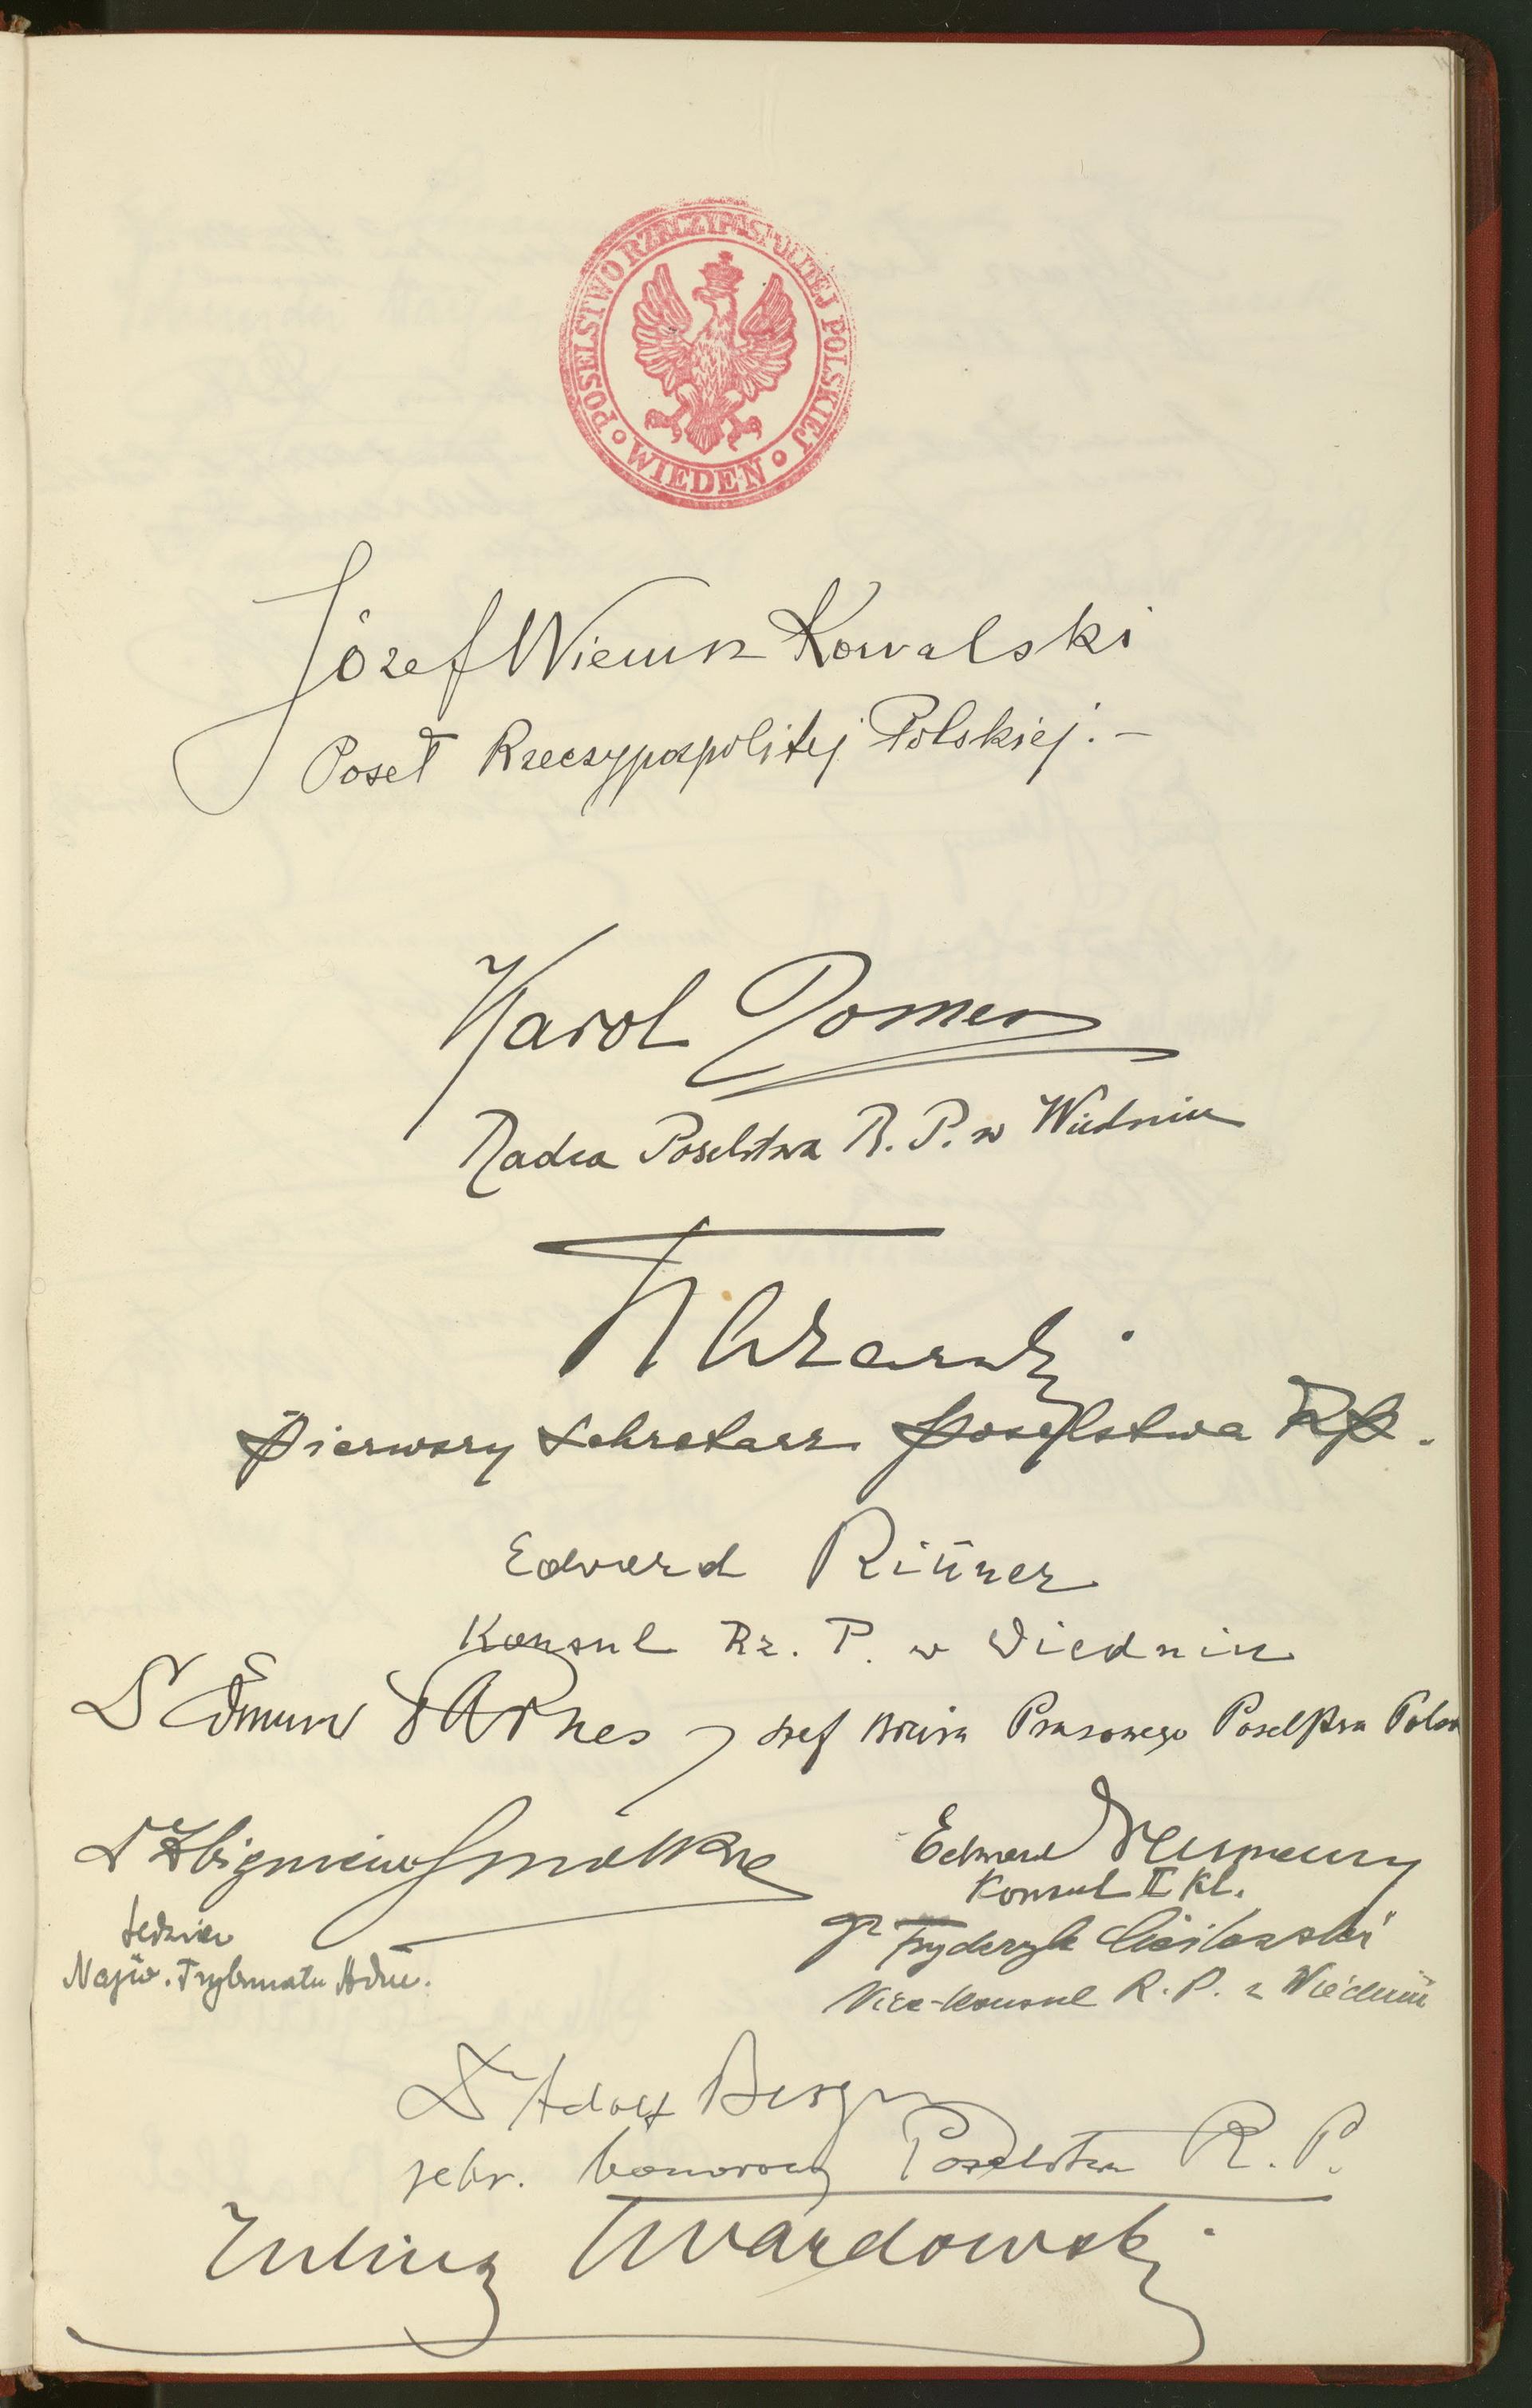 POSELSTWO RZECZYPOSPOLITEJ POLSKIEJ
WIEDEŃ
Józef Wierusz Kowalski
Poseł Rzeczypospolitej Polskiej. –
Karol
Radca Poselstwa R. P. w Wiedniu
Pierwszy Sekretarz Poselstwa RP.
Edward Rittner
Konsul Rz. P. w Wiedniu
Dr Edmund Parnes, szef Biura Prasowego Poselstwa
Dr Zbigniew Smolka
Sędzia
Najw. Trybunału Adm.
Edward
Konsul II Kl.
Fryderyk
Vice-Konsul R. P. w Wiedniu
Dr Adolf Berger
sekr. honorowy Poselstwa R. P.
Juliusz Twardowski